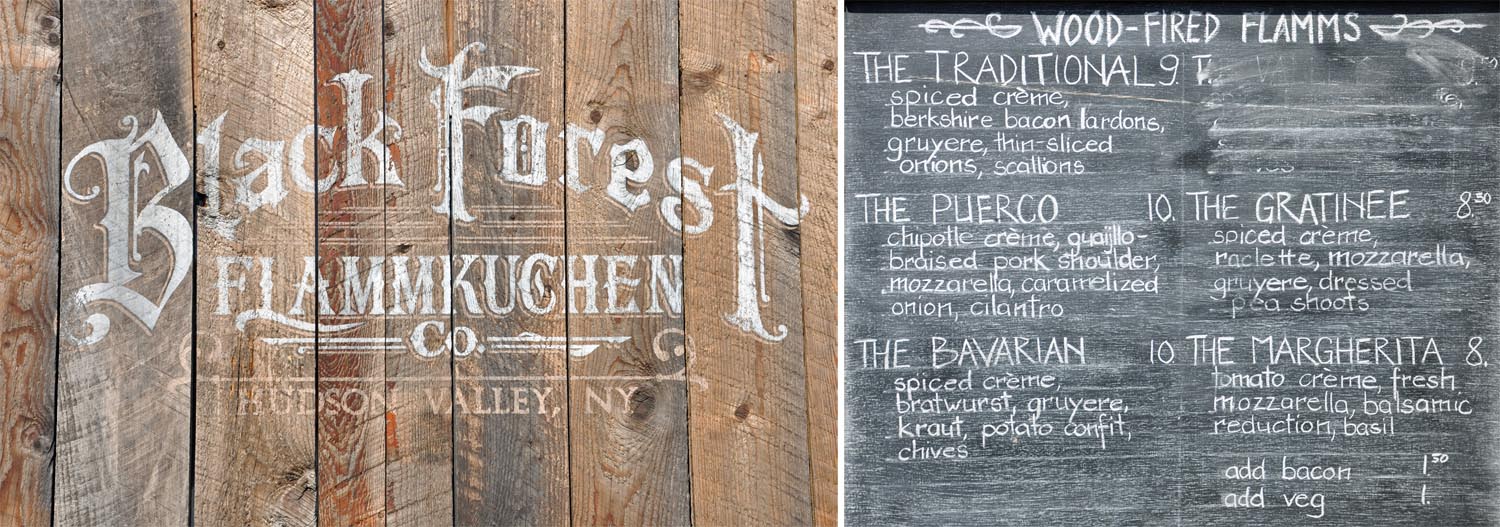 Black Forest
FLAMMKUCHEN
Co.
HUDSON VALLEY, NY
WOOD-FIRED FLAMMS
THE TRADITIONAL 9
spiced crème,
berkshire bacon lardons,
gruyere, thin-sliced
onions, scallions
THE PUERCO 10.
chipotle crème, guajillo-
braised pork shoulder,
mozzarella, caramelized
onion, cilantro
THE BAVARIAN 10
spiced crème,
bratwurst, gruyere,
kraut, potato confit,
chives
THE GRATINEE 8.50
spiced crème,
raclette, mozzarella,
gruyere, dressed
pea shoots
THE MARGHERITA 8.
tomato crème, fresh
mozzarella, balsamic
reduction, basil
add bacon 1.50
add veg 1.